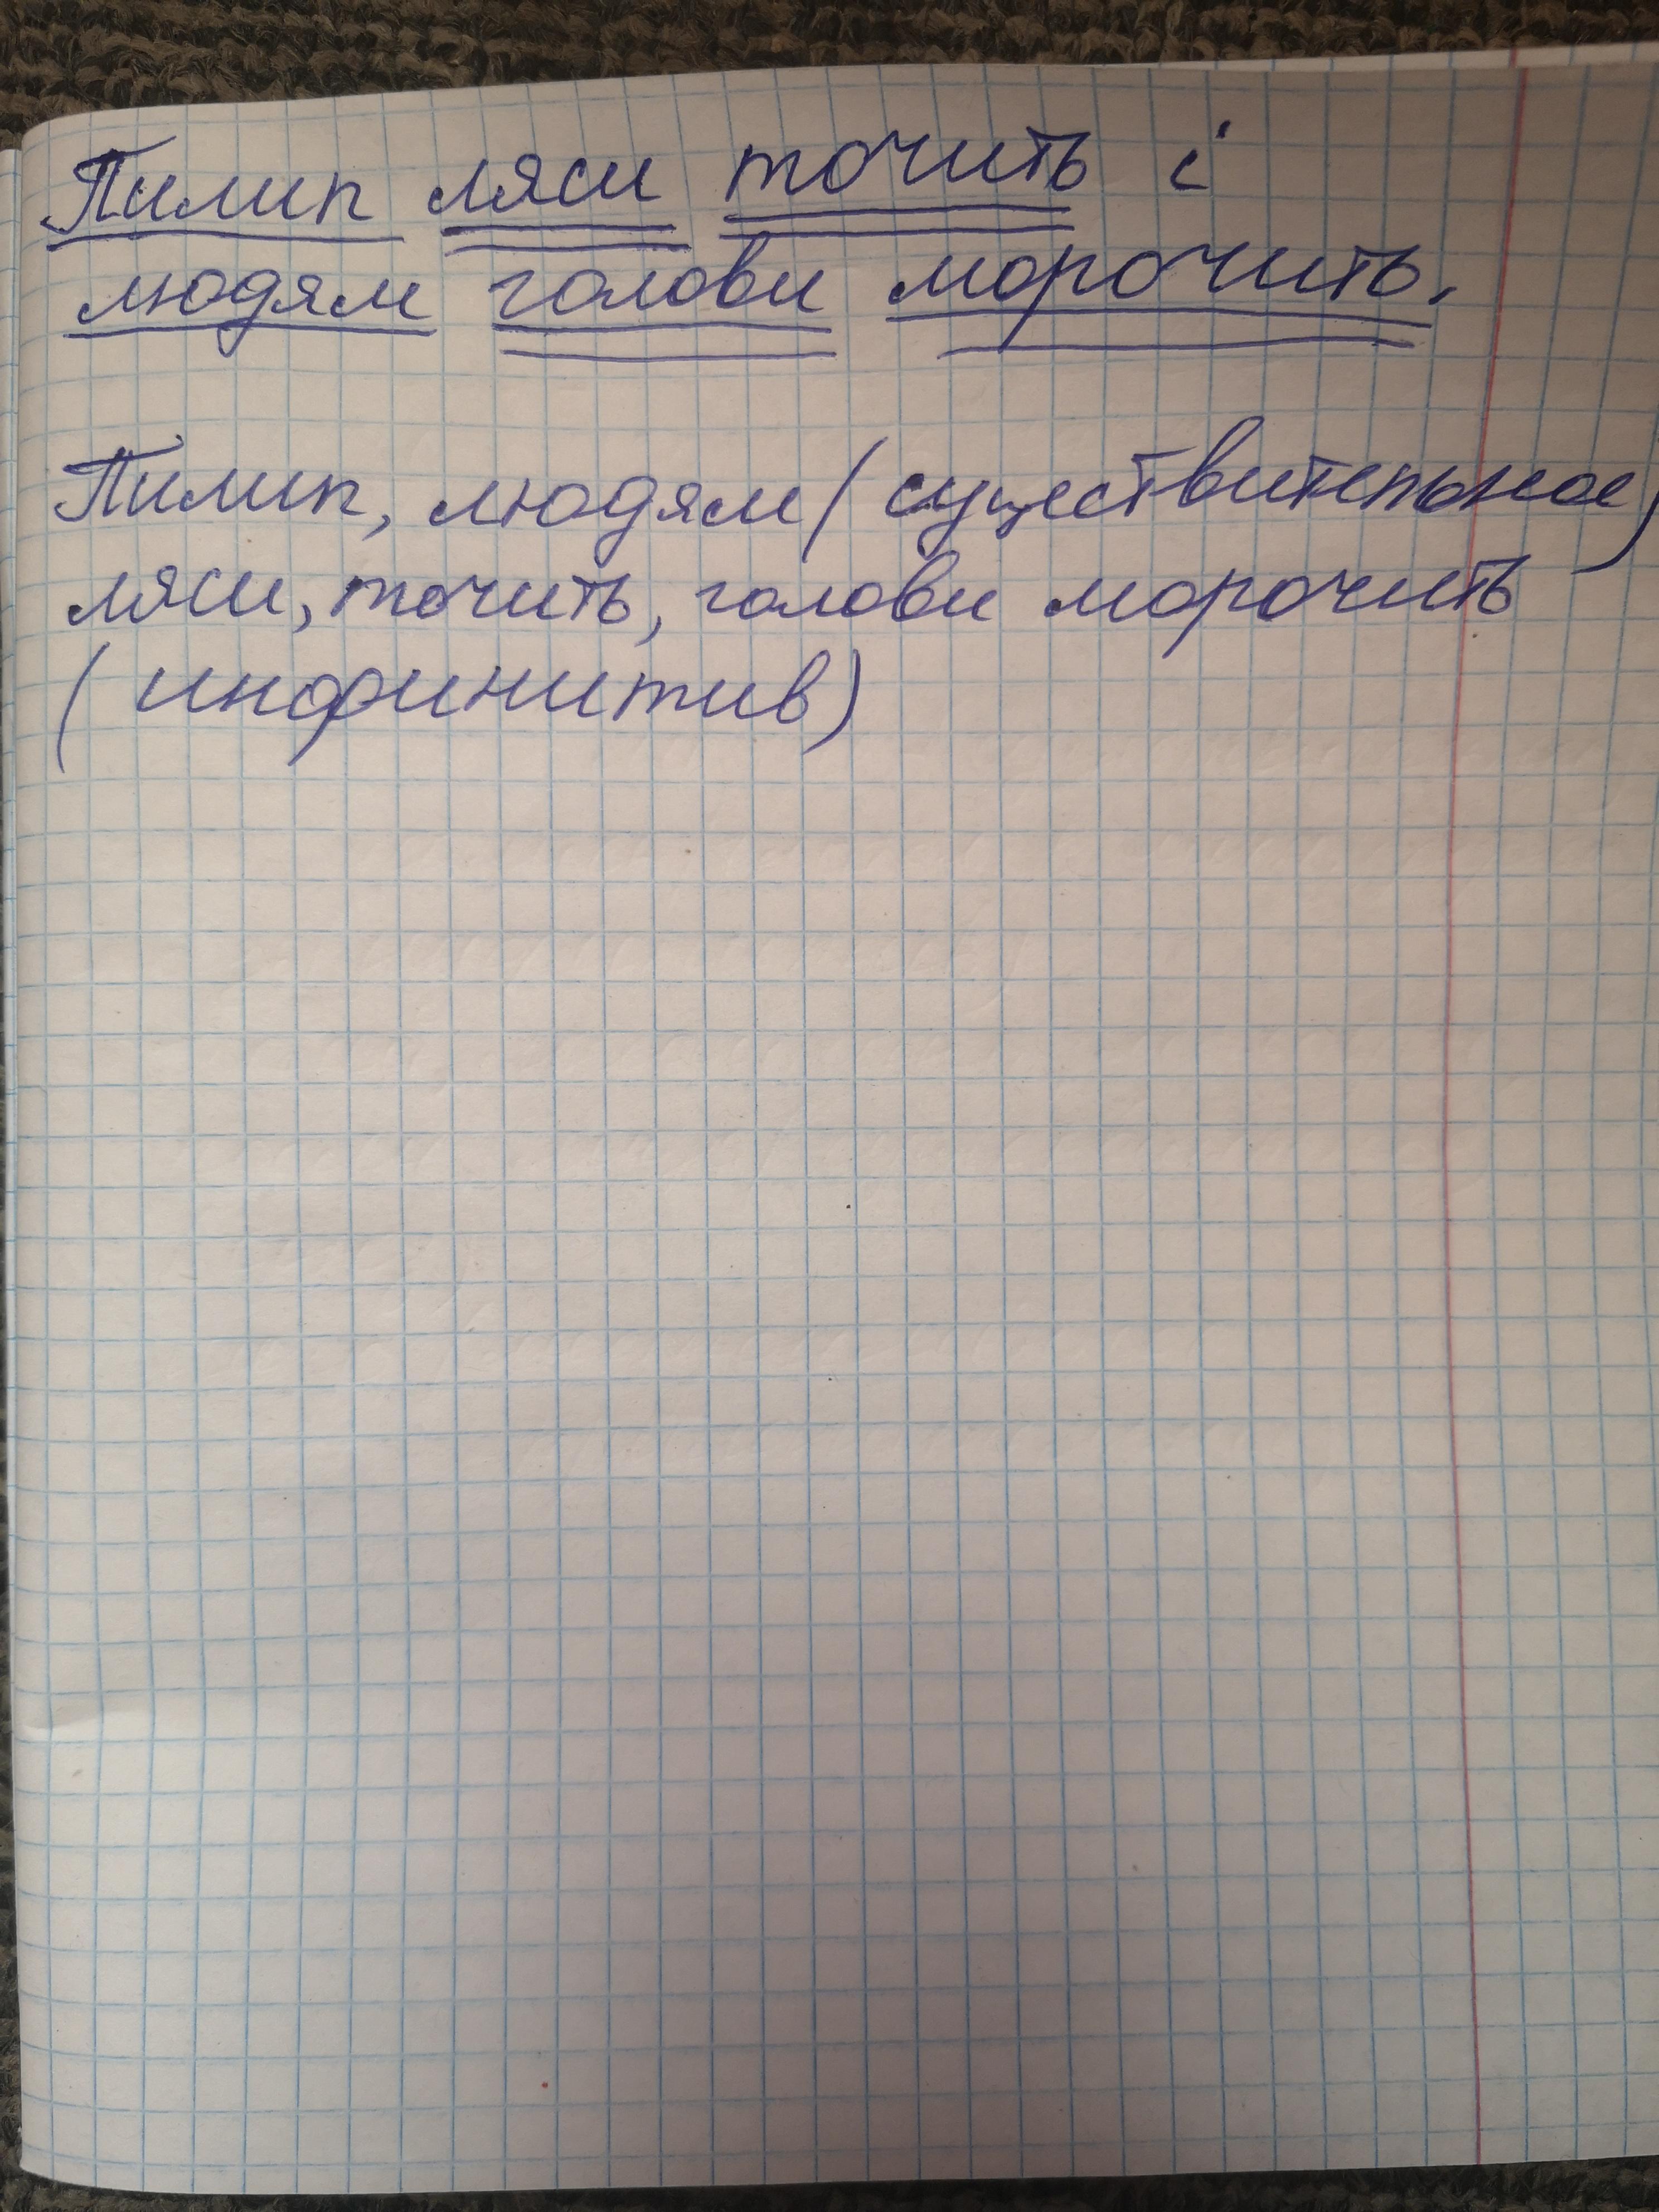 Пилип ляси точить і
людям голови морочить.
Пилип, людям (существительное)
ляси, точить, голови морочить
(инфинитив)